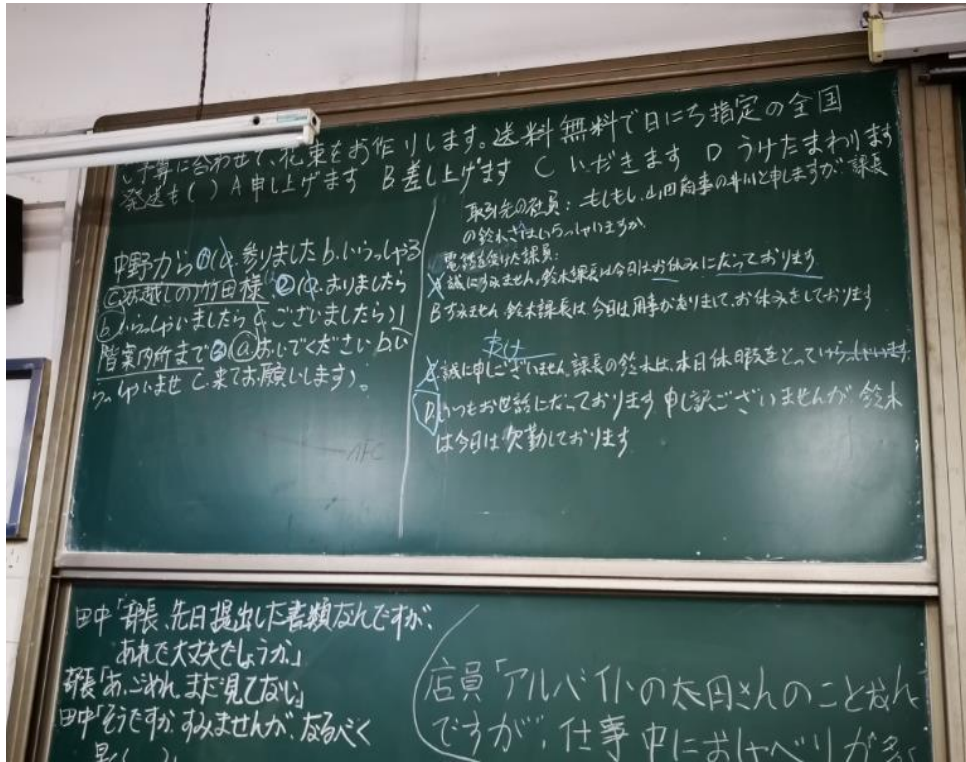 ご予算に合わせて、花束をお作りします。送料無料で日にち指定の全国
発送も( ) A申し上げます B差し上げます C いだきます D うけたまわります
中野から①(a.参りました b.いらっしゃる
c.お越しの)竹田様、②(a.おりましたら
b.いらっしゃいましたら c.ございましたら)1
階案内所まで③(a.おいでください b.い
らっしゃいませ c.来てお願いします)。
取引先の社員：もしもし、山田商事の井川と申しますが、課長
の鈴木さまはいらっしゃいますか
電話を受けた課員：
A 誠にすみません、鈴木課長は今日はお休みになっております
Bすみません、鈴木課長は、今日は用事がありまして、お休みをしております
C 誠に申しございません。課長の鈴木は、本日休暇をとっていらっしゃいます
D.いつもお世話になっております 申し訳ございませんが、鈴木
は今日は欠勤しております
AFC
田中「部長、先日提出した書類なんですが、
あれで大丈夫でしょうか。」
部長「あ、ごめん、まだ見てない」
田中「そうですか、すみませんが、なるべく
早く( )
店員「アルバイトの太田さんのことなん
ですが、仕事中におしゃべりが多